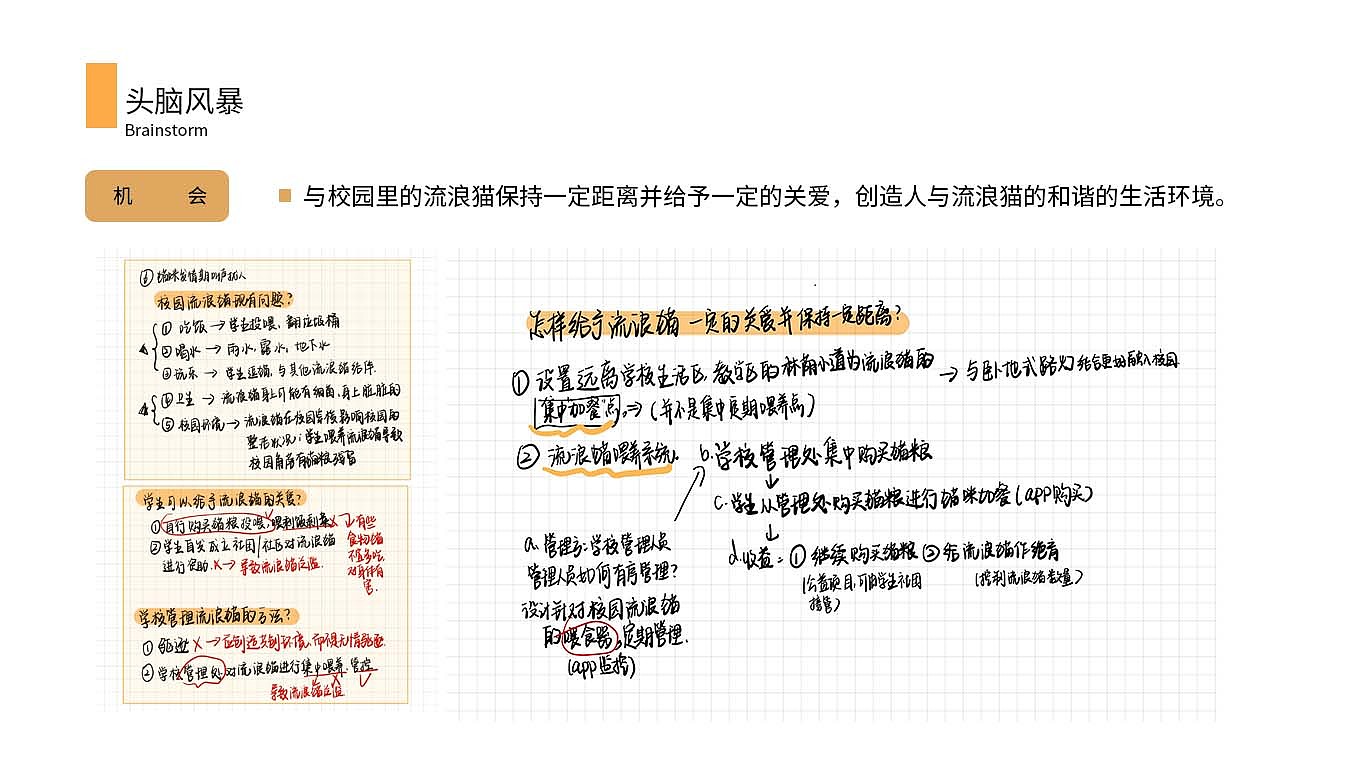 头脑风暴
Brainstorm
机 会
与校园里的流浪猫保持一定距离并给予一定的关爱，创造人与流浪猫的和谐的生活环境。
⑥ 猫咪发情期叫声扰人
校园流浪猫现有问题？
① 吃饭 → 学生投喂、翻垃圾桶
② 喝水 → 雨水、露水、地下水
③ 玩乐 → 学生逗猫、与其他流浪猫结伴.
④ 卫生 → 流浪猫身上可能有细菌、身上脏脏的
⑤ 校园环境 → 流浪猫在校园等候影响校园的
整形状况；学生喂养流浪猫导致
校园角落有猫粮残留
学生可以给予流浪猫的关爱？
① 自行购买猫粮投喂，喂剩饭剩菜 X → 有些
食物猫
不宜多吃.
对身体有
害.
② 学生自发成立社团/社区对流浪猫
进行救助. X → 导致流浪猫泛滥.
学校管理流浪猫的方法？
① 驱逐 X → 应创造美创环境、而得无情驱逐.
② 学校管理处对流浪猫进行集中喂养、管控
X
导致流浪猫泛滥
怎样给予流浪猫一定的关爱并保持一定距离？
① 设置远离学校生活区、教学区的林荫小道为流浪猫的 → 与卧地式路灯结合更好融入校园
“集中加餐”点 ⇒ (并不是集中定期喂养点)
② 流浪猫喂养系统.
b. 学校管理处集中购买猫粮
↓
c. 学生从管理处购买猫粮进行猫咪加餐 (app购买)
↓
d. 收益 = ① 继续购买猫粮 ② 给流浪猫作绝育
(公益项目，可由学生社团
接管)
(控制流浪猫数量)
a. 管理方：学校管理员
管理人员如何有序管理？
设计针对校园流浪猫
的喂食器，定期管理.
(app监控)